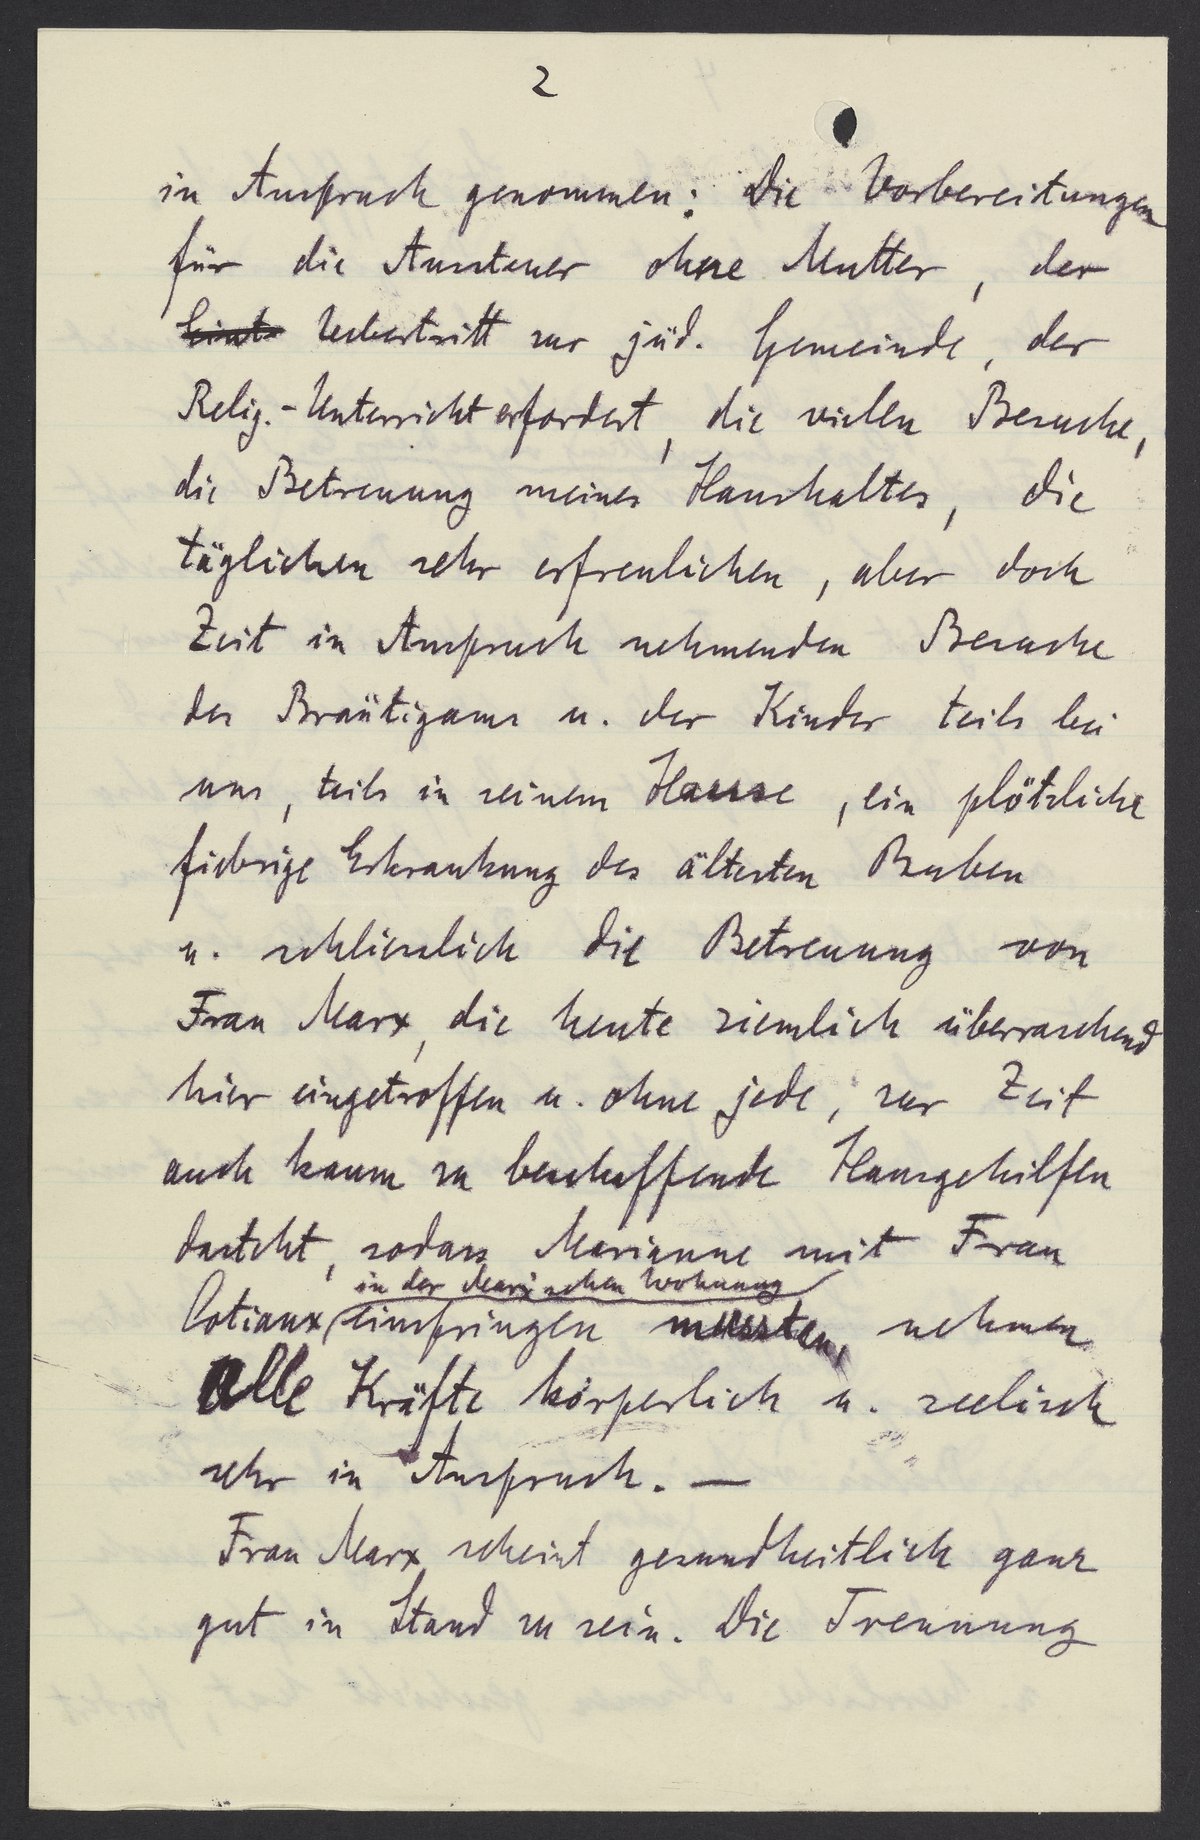 2
in Anspruch genommen: Die Vorbereitungen
für die Aussteuer ohne Mutter, der
Uebertritt zur jüd. Gemeinde, der
Relig.-Unterricht erfordert, die vielen Besuche,
die Betreuung meines Haushaltes, die
täglichen sehr erfreulichen, aber doch
Zeit in Anspruch nehmenden Besuche
des Bräutigams u. der Kinder teils bei
uns, teils in seinem Hause, ein plötzliche
fiebrige Erkrankung des ältesten Buben
u. schliesslich die Betreuung von
Frau Marx, die heute ziemlich überraschend
hier eingetroffen u. ohne jede, zur Zeit
auch kaum zu beschaffende Hausgehilfen
dasteht, sodass Marianne mit Frau
in der Marxischen Wohnung
Cotiaux einspringen mussten, nehmen
alle Kräfte körperlich u. seelisch
sehr in Anspruch. —
Frau Marx scheint gesundheitlich ganz
gut in Stand zu sein. Die Trennung